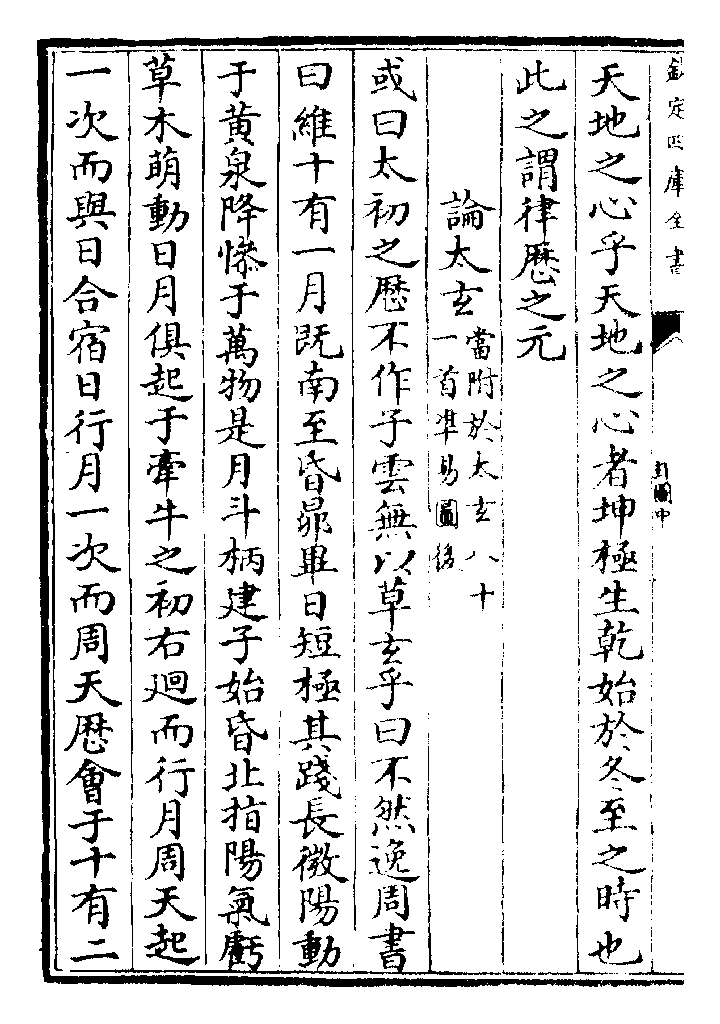 欽定四庫全書
卦圖中
天地之心乎天地之心者坤極生乾始於冬至之時也
此之謂律歴之元
論太玄當附於太玄八十
一首凖易圖後
或曰太初之歴不作子雲無以草玄乎曰不然逸周書
曰維十有一月既南至昏昴畢日短極其踐長微陽動
于黄泉降慘于萬物是月斗柄建子始昏北指陽氣虧
草木萌動日月俱起于牽牛之初右廻而行月周天起
一次而與日合宿日行月一次而周天歴會于十有二